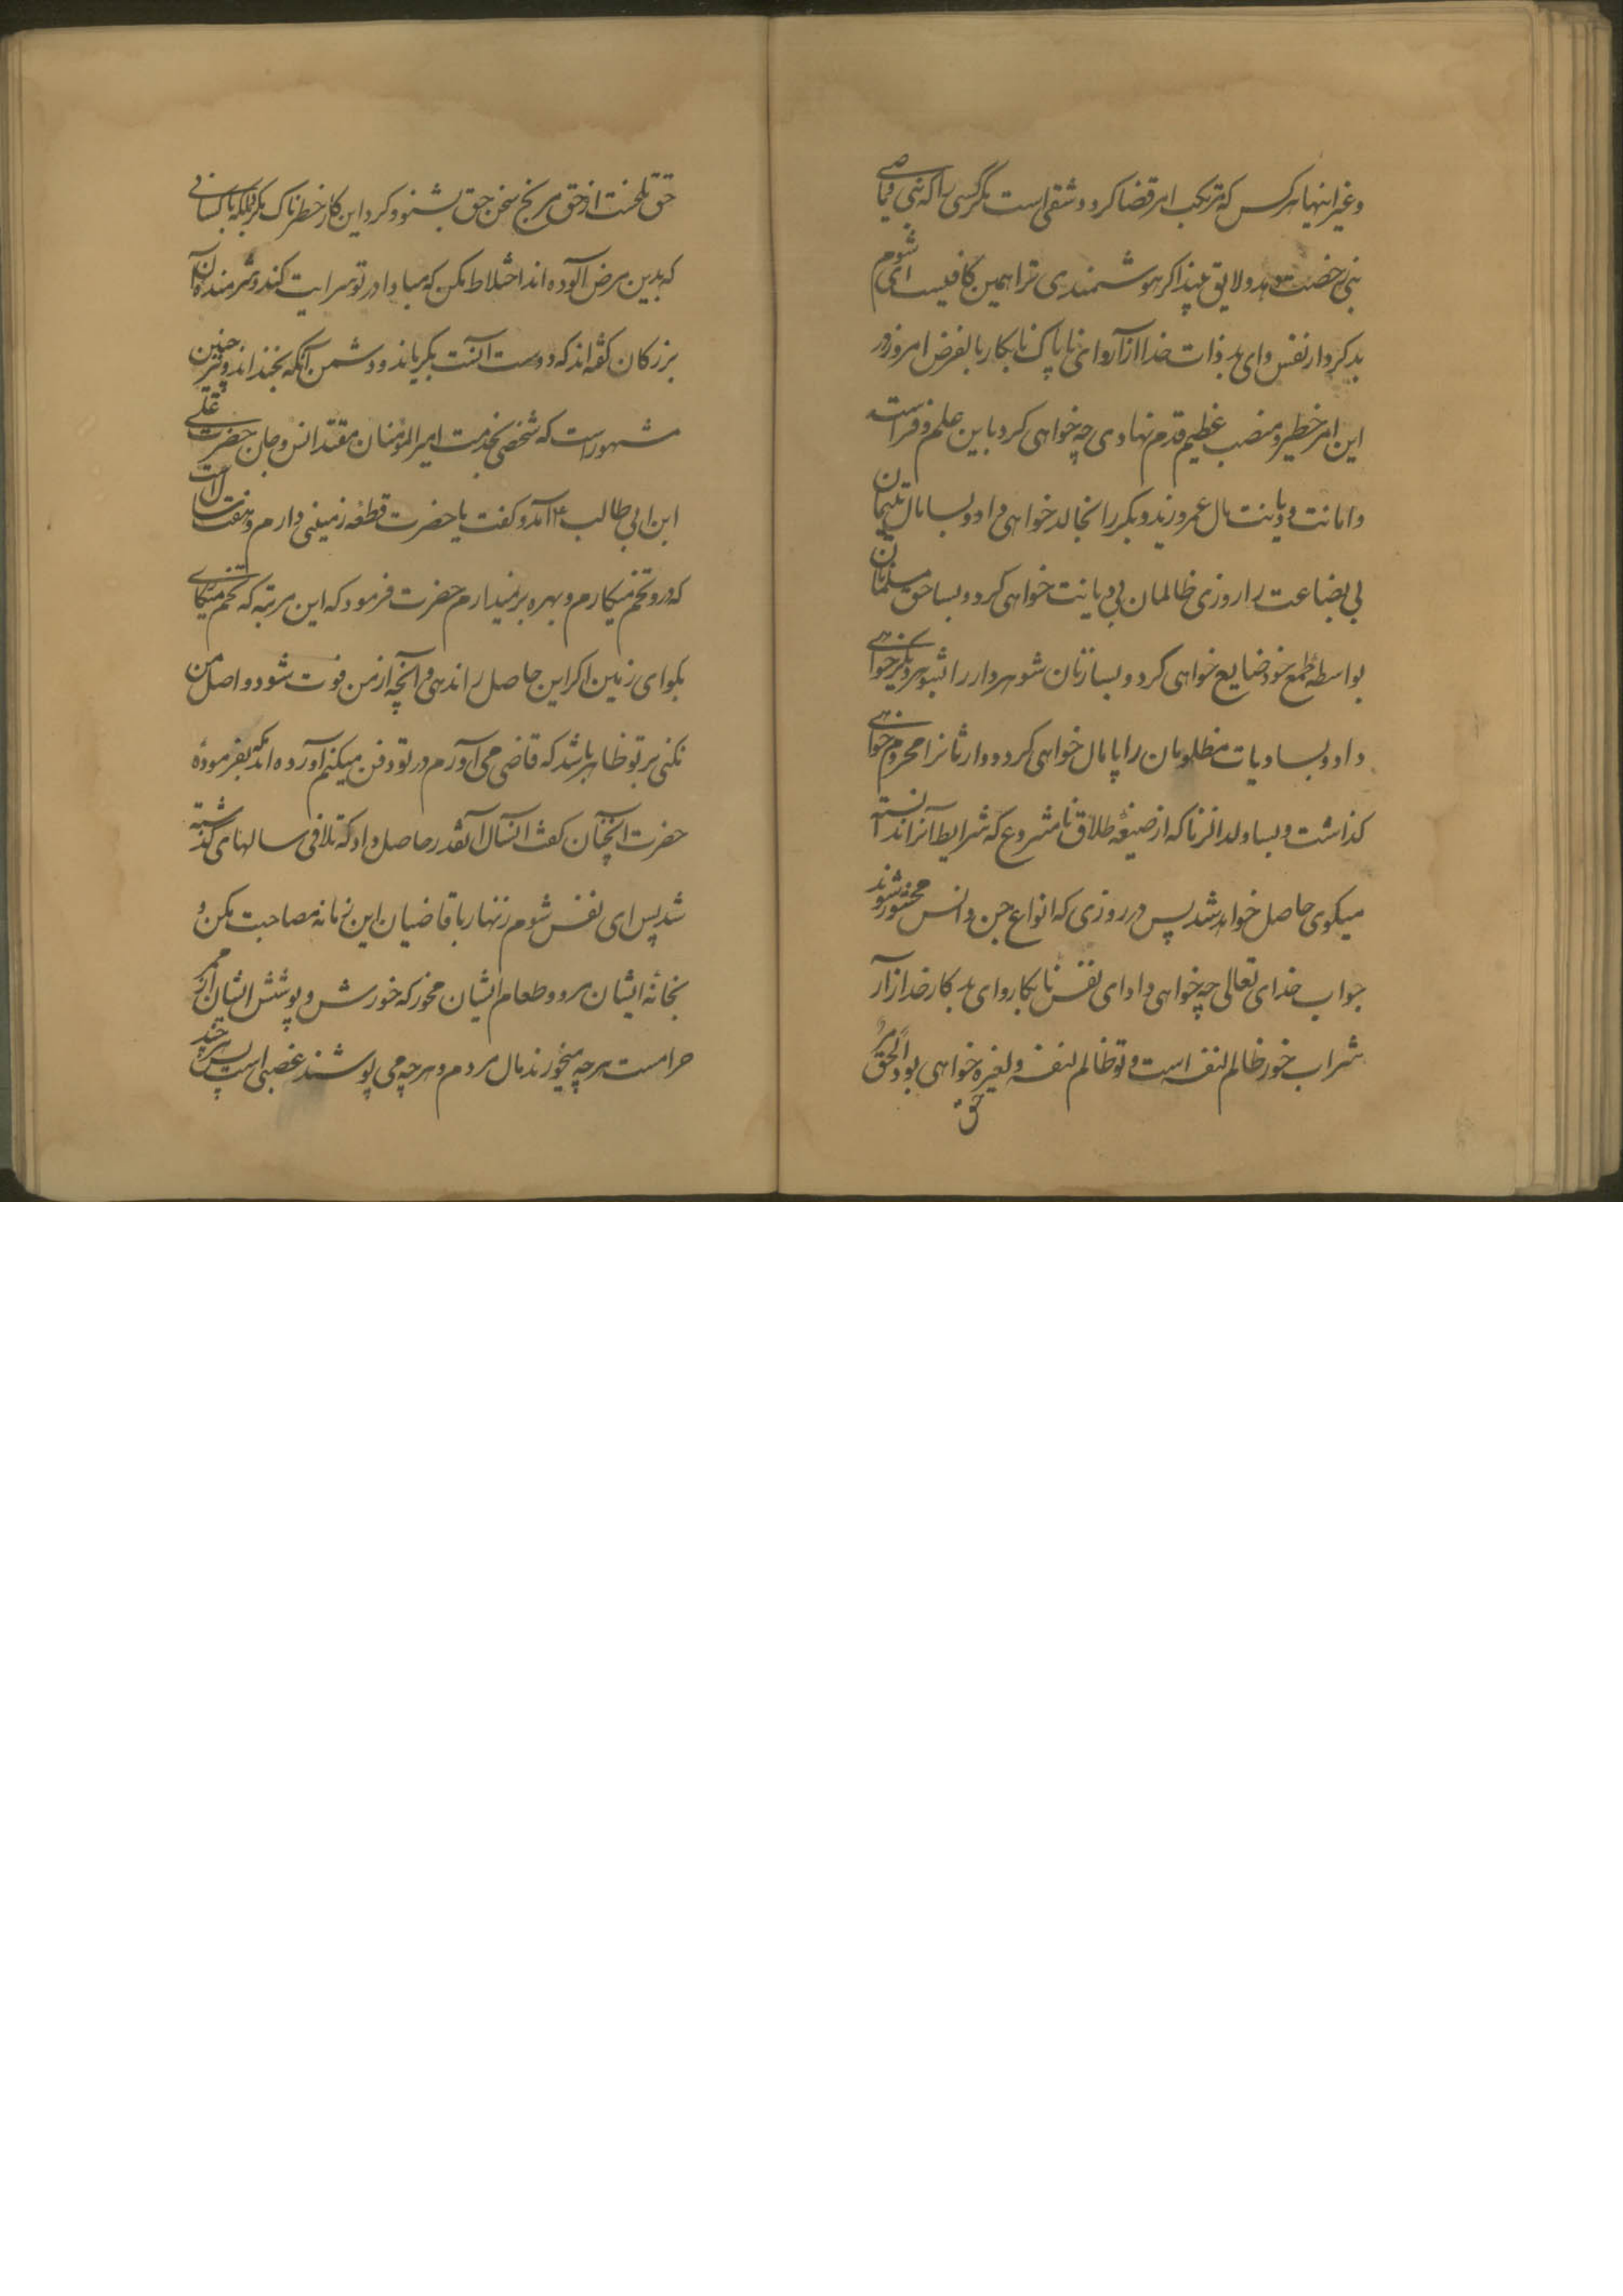 وغیر اینها هرکس که مرتکب امر قضا کردد شقی است مکر کسی را که نبی یا وصی
نبی رخصت دهد و لایق بیند اکر هوشمندی ترا همین کافیست ای شوم
بد کردار نفس وای بد ذات خدا آزار وای ناپاک نابکار بالفرض امروز در
این امر خطیر و منصب عظیم قدم نهادی چه خواهی کرد باین علم و فراست
وامانت ودیانت مال عمرو زید و بکر را بخالد خواهی داد و بسا مال یتیمان
بی بضاعت را روزی ظالمان بی دیانت خواهی کرد و بسا حق مسلمانان
بواسطه طمع خود ضایع خواهی کرد و بسا زنان شوهردار را بشوهر دیکر خواهی
داد و بسا دیات مظلومان را پامال خواهی کرد و وارثانرا محروم خواهی
کذاشت و بسا ولد الزنا که از صیغهٔ طلاق نامشروع که شرایط آنرا ندانسته
میکوی حاصل خواهد شد پس در روزی که انواع جن و انس محشور شوند
جواب خدای تعالی چه خواهی داد ای نفس نابکار وای بد کار خدا آزار
شراب خور ظالم لنفسه است و تو ظالم لنفسه و لغیره خواهی بود الحق مر
حق
حق تلخست از حق مرنج سخن حق بشنو و کرد این کار خطرناک مکرد بلکه با کسانی
که بدین مرض آلوده اند اختلاط مکن که مبادا در تو سرایت کند و شرمنده کآن
بزرکان کفته اند که دوست آنست بکریاند و دشمن آنکه بخنداند و نیز چنین
مشهور است که شخصی بخدمت امیر المؤمنان مقتدا انس و جان حضرت علی
ابن ابی طالب ع آمد و کفت یا حضرت قطعه زمینی دارم و هفت سالست
که درو تخم میکارم و بهره برنمیدارم حضرت فرمود که این مرتبه که تخم میکاری
بکو ای زمین اکر این حاصل را ندهی و آنچه از من فوت شود واصل من
نکنی بر تو ظاهر باشد که قاضی می آورم در تو دفن میکنم آورده اند که بفرمودهٔ
حضرت آنچنان کفت آنسال آنقدر حاصل داد که تلافی سالهای کذشته
شد پس ای نفس شوم زنهار با قاضیان این زمانه مصاحبت مکن و
بخانهٔ ایشان مرو و طعام ایشان مخور که خورش و پوشش ایشان از ممر
حرامست هرچه میخورند مال مردم و هرچه می پوشند غصبی است پس هرچند